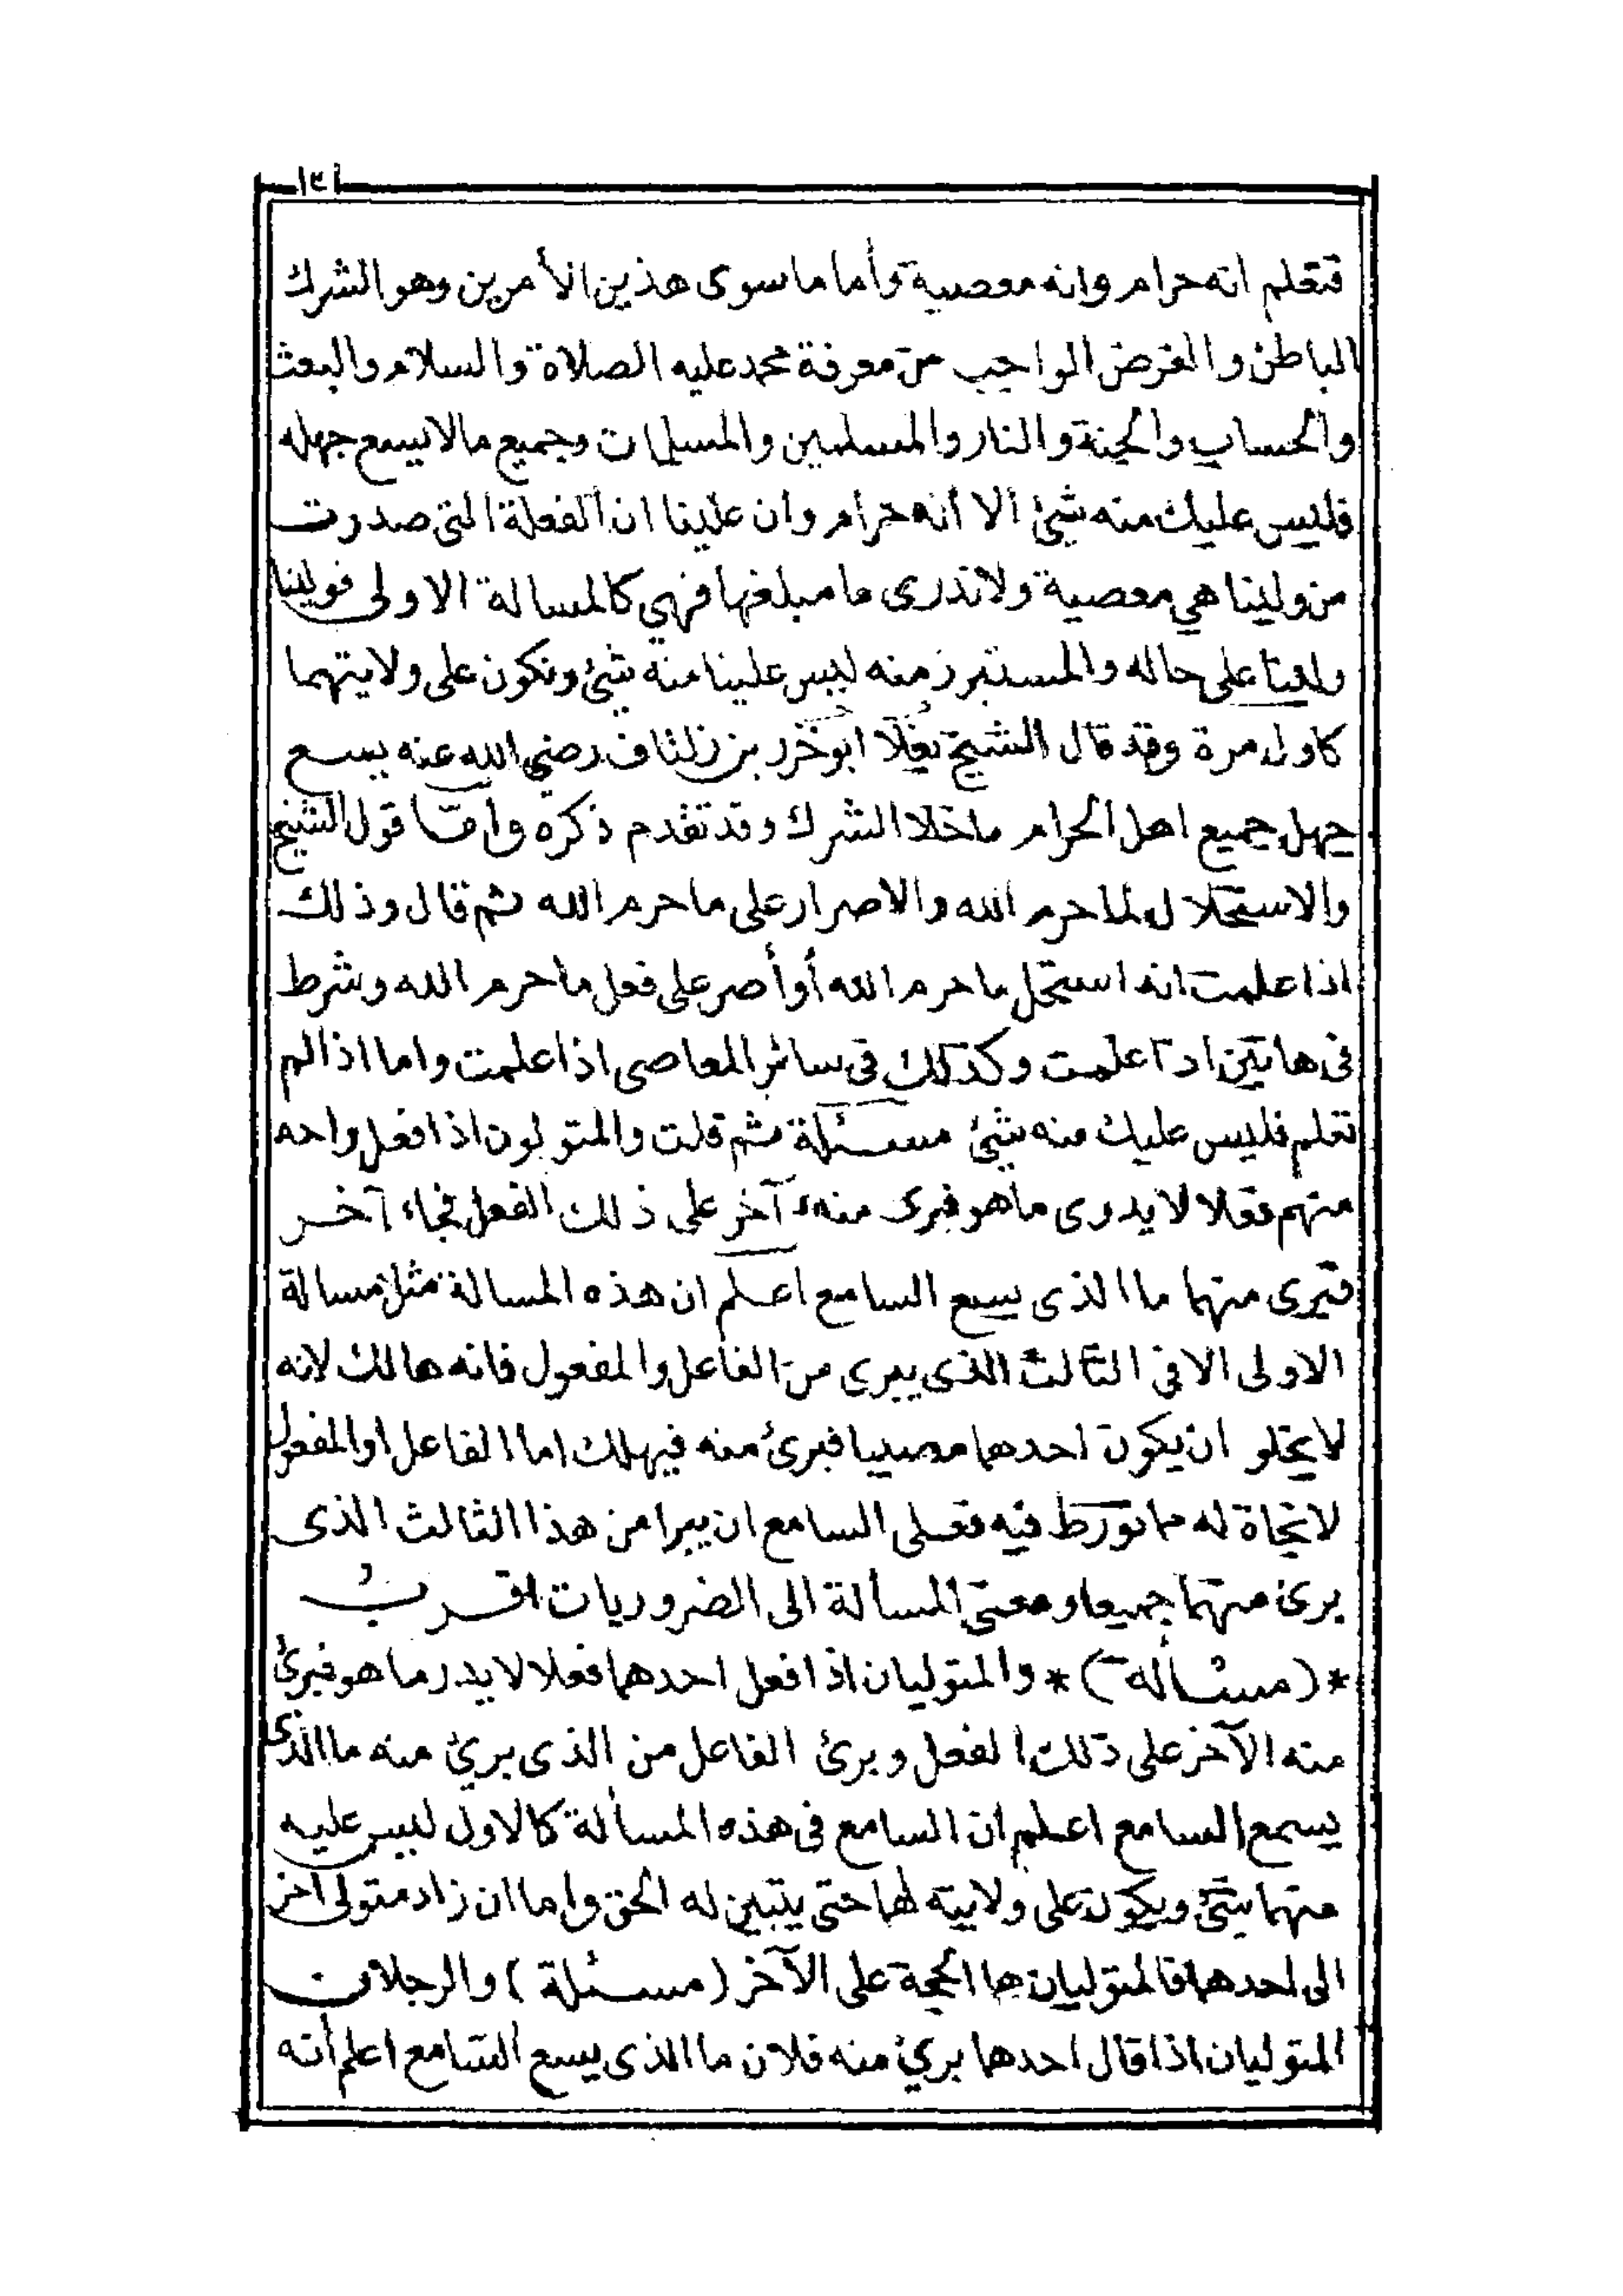 ١٣١
فتعلم انه حرام وانه معصية وأما ما سوى هذين الأمرين وهو الشرك
الباطن والفرض الواجب من معرفة محمد عليه الصلاة والسلام والبعث
والحساب والجنة والنار والمسلمين والمسلمات وجميع ما لا يسع جهله
فليس عليك منه شئ الا أنه حرام وان علينا ان الفعلة التى صدرت
من ولينا هي معصية ولا ندرى ما مبلغها فهي كالمسالة الاولى فولينا
ولينا على حاله والمستبرز منه ليس علينا منه شئ ونكون على ولايتهما
كاول مرة وقد قال الشيخ يغلا ابو خزر بن زلتاف رضي الله عنه يسع
جهل جميع اهل الحرام ما خلا الشرك وقد تقدم ذكره وامّا قول الشيخ
والاستحلال لما حرم الله والاصرار على ما حرم الله ثم قال وذلك
اذا علمت انه استحل ما حرم الله أو أصر على فعل ما حرم الله وشرط
فى هاتين اذا علمت وكذلك فى سائر المعاصى اذا علمت واما اذا لم
تعلم فليس عليك منه شئ مسئلة ثم قلت والمتولون اذا فعل واحد
منهم فعلا لا يدرى ما هو فبرئ منه آخر على ذلك الفعل فجاء آخر
فتبرى منهما ما الذى يسع السامع اعلم ان هذه المسالة مثل مسالة
الاولى الا فى الثالث الذى يبرى من الفاعل والمفعول فانه هالك لانه
لا يخلو ان يكون احدهما مصيبا فبرئ منه فيهلك اما الفاعل او المفعول
لا نجاة له مما تورط فيه فعلى السامع ان يبرا من هذا الثالث الذى
برئ منهما جميعا ومعنى المسألة الى الضروريات اقرب
*(مسألة)* والمتوليان اذا فعل احدهما فعلا لا يدر ما هو فبرئ
منه الآخر على ذلك الفعل وبرئ الفاعل من الذى برئ منه ما الذى
يسمع السامع اعلم ان السامع فى هذه المسألة كالاول ليس عليه
منهما شئ ويكون على ولايته لهما حتى يتبين له الحق واما ان زاد متولى اخر
الى احدهما فالمتوليان هما الحجة على الآخر (مسئلة) والرجلان
المتوليان اذا قال احدهما برئ منه فلان ما الذى يسع السامع اعلم أنه